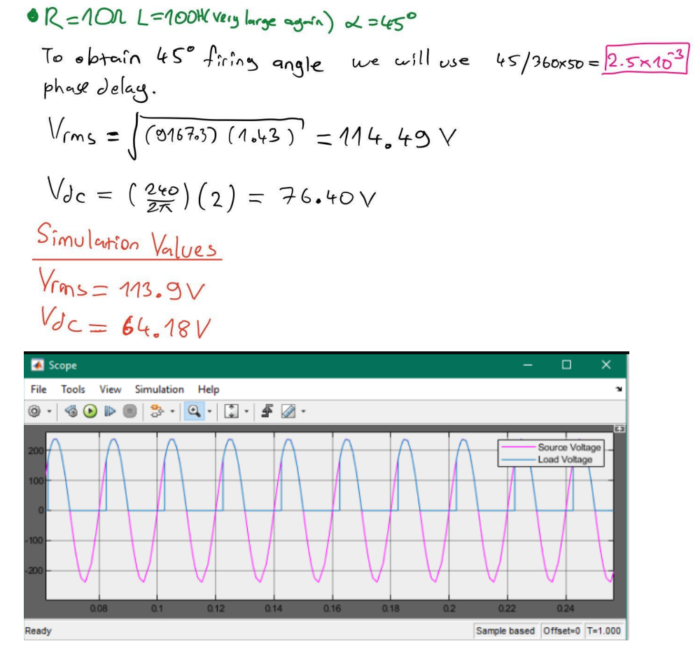 • R=10Ω L=100H(very large again) α=45°
To obtain 45° firing angle we will use 45/360x50 = 2.5x10⁻³
phase delay.
Vrms = √(9167.3)(1.43) = 114.49 V
Vdc = (240/2π)(2) = 76.40V
Simulation Values
Vrms = 113.9V
Vdc = 64.18V
Scope
File Tools View Simulation Help
Source Voltage
Load Voltage
200
100
0
-100
-200
0.08 0.1 0.12 0.14 0.16 0.18 0.2 0.22 0.24
Ready Sample based Offset=0 T=1.000